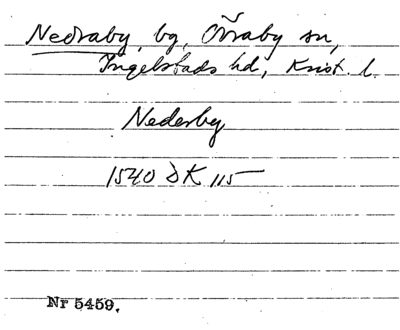 Nedraby, bg, Övraby sn,
Ingelstads hd, Krist. l.
Nederby
1540 DK 115
Nr 5459.